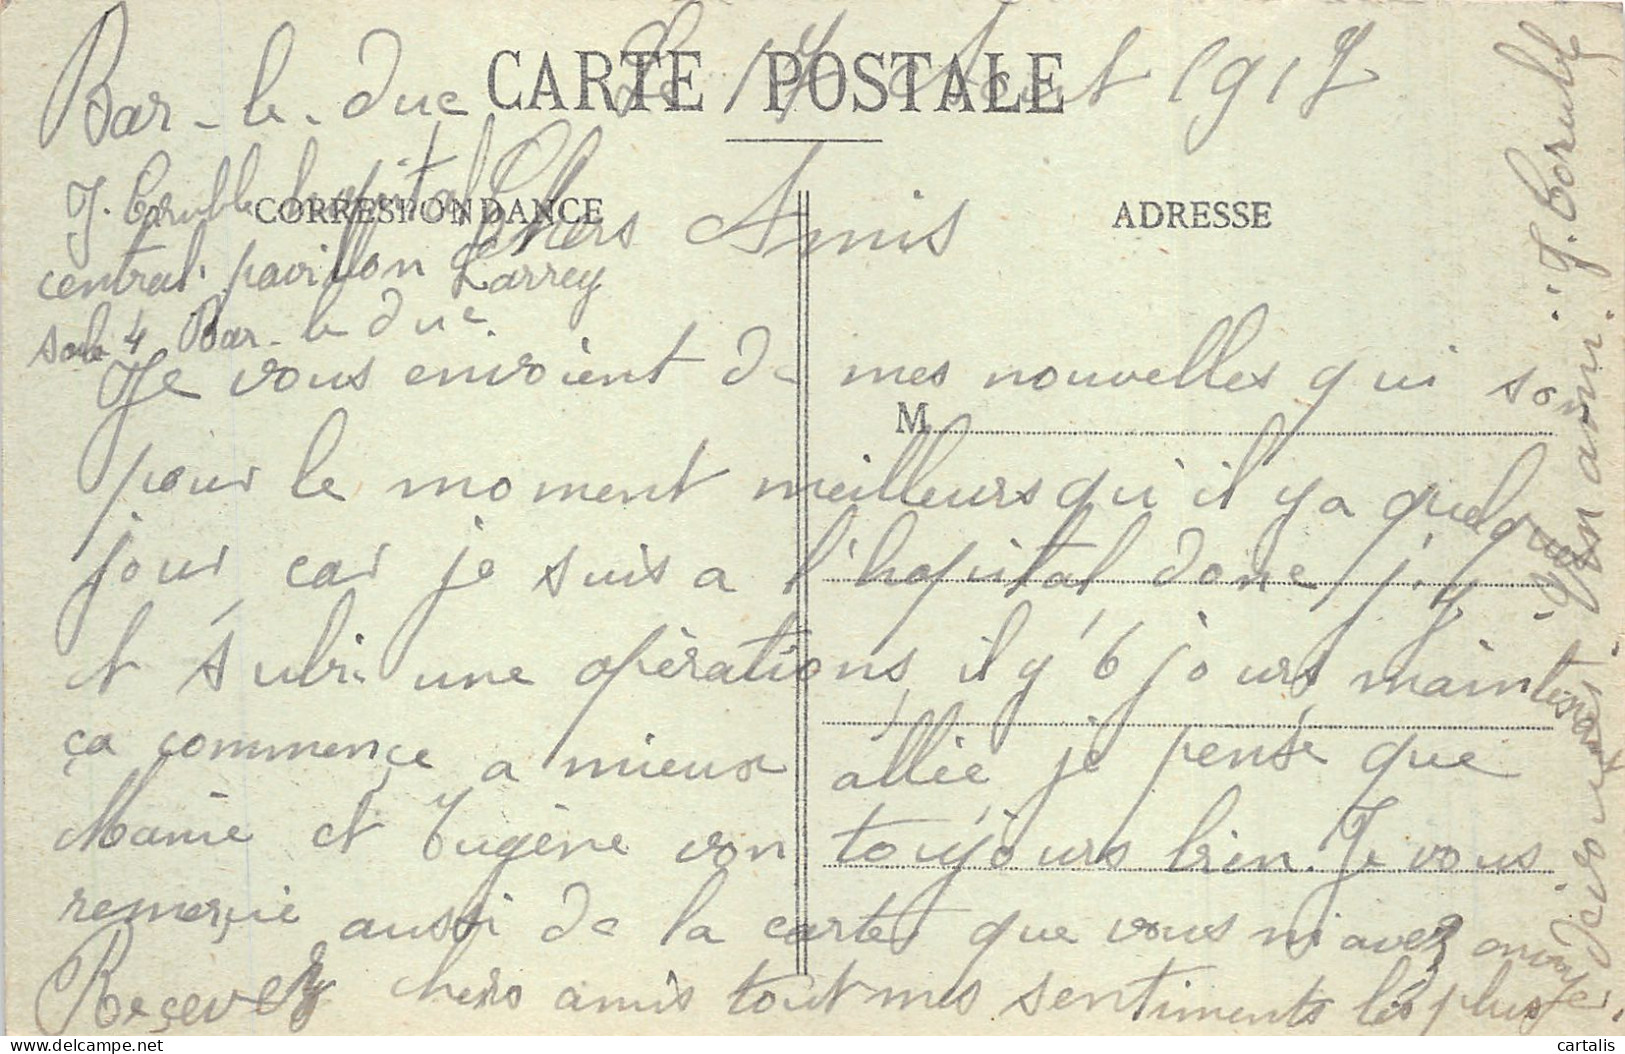 Bar-le-duc Le 17 Aout 1917
CARTE POSTALE
CORRESPONDANCE
ADRESSE
M
J. hopital
central pavillon Larrey
salle 4 Bar-le duc
Chers Amis
Je vous envoient de mes nouvelles qui son
pour le moment meilleurs qu'il y a quelque
jour car je suis a l'hopital donc j'y
et subi une opèrations, il y' 6 jours maintenant
ça commençe a mieux allée je pense que
Mamie et Eugène von toujours bien. Je vous
remerçie aussi de la carte que vous m'avez envoyer
Reçevez chers amis tout mes sentiments les plus
dèvoués
Un ami: J.
cartalis